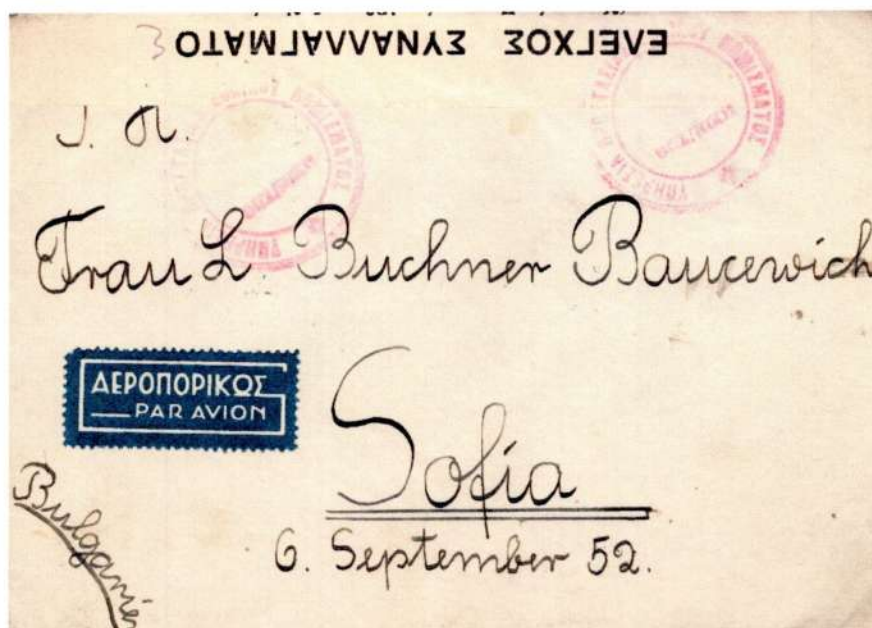 ΕΛΕΓΧΟΣ ΣΥΝΑΛΛΑΓΜΑΤΟ
3
J. A.
Frau L. Buchner Baucewich
ΑΕΡΟΠΟΡΙΚΩΣ
PAR AVION
Sofia
6. September 52.
Bulgarien